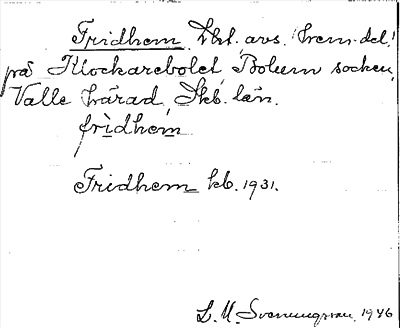 Fridhem, lht, avs. (hem.del.)
på Klockarebolet, Bolum socken,
Valle härad, Skb. län.
fridhem
Fridhem kb. 1931.
L. M. Svenungsson. 1946